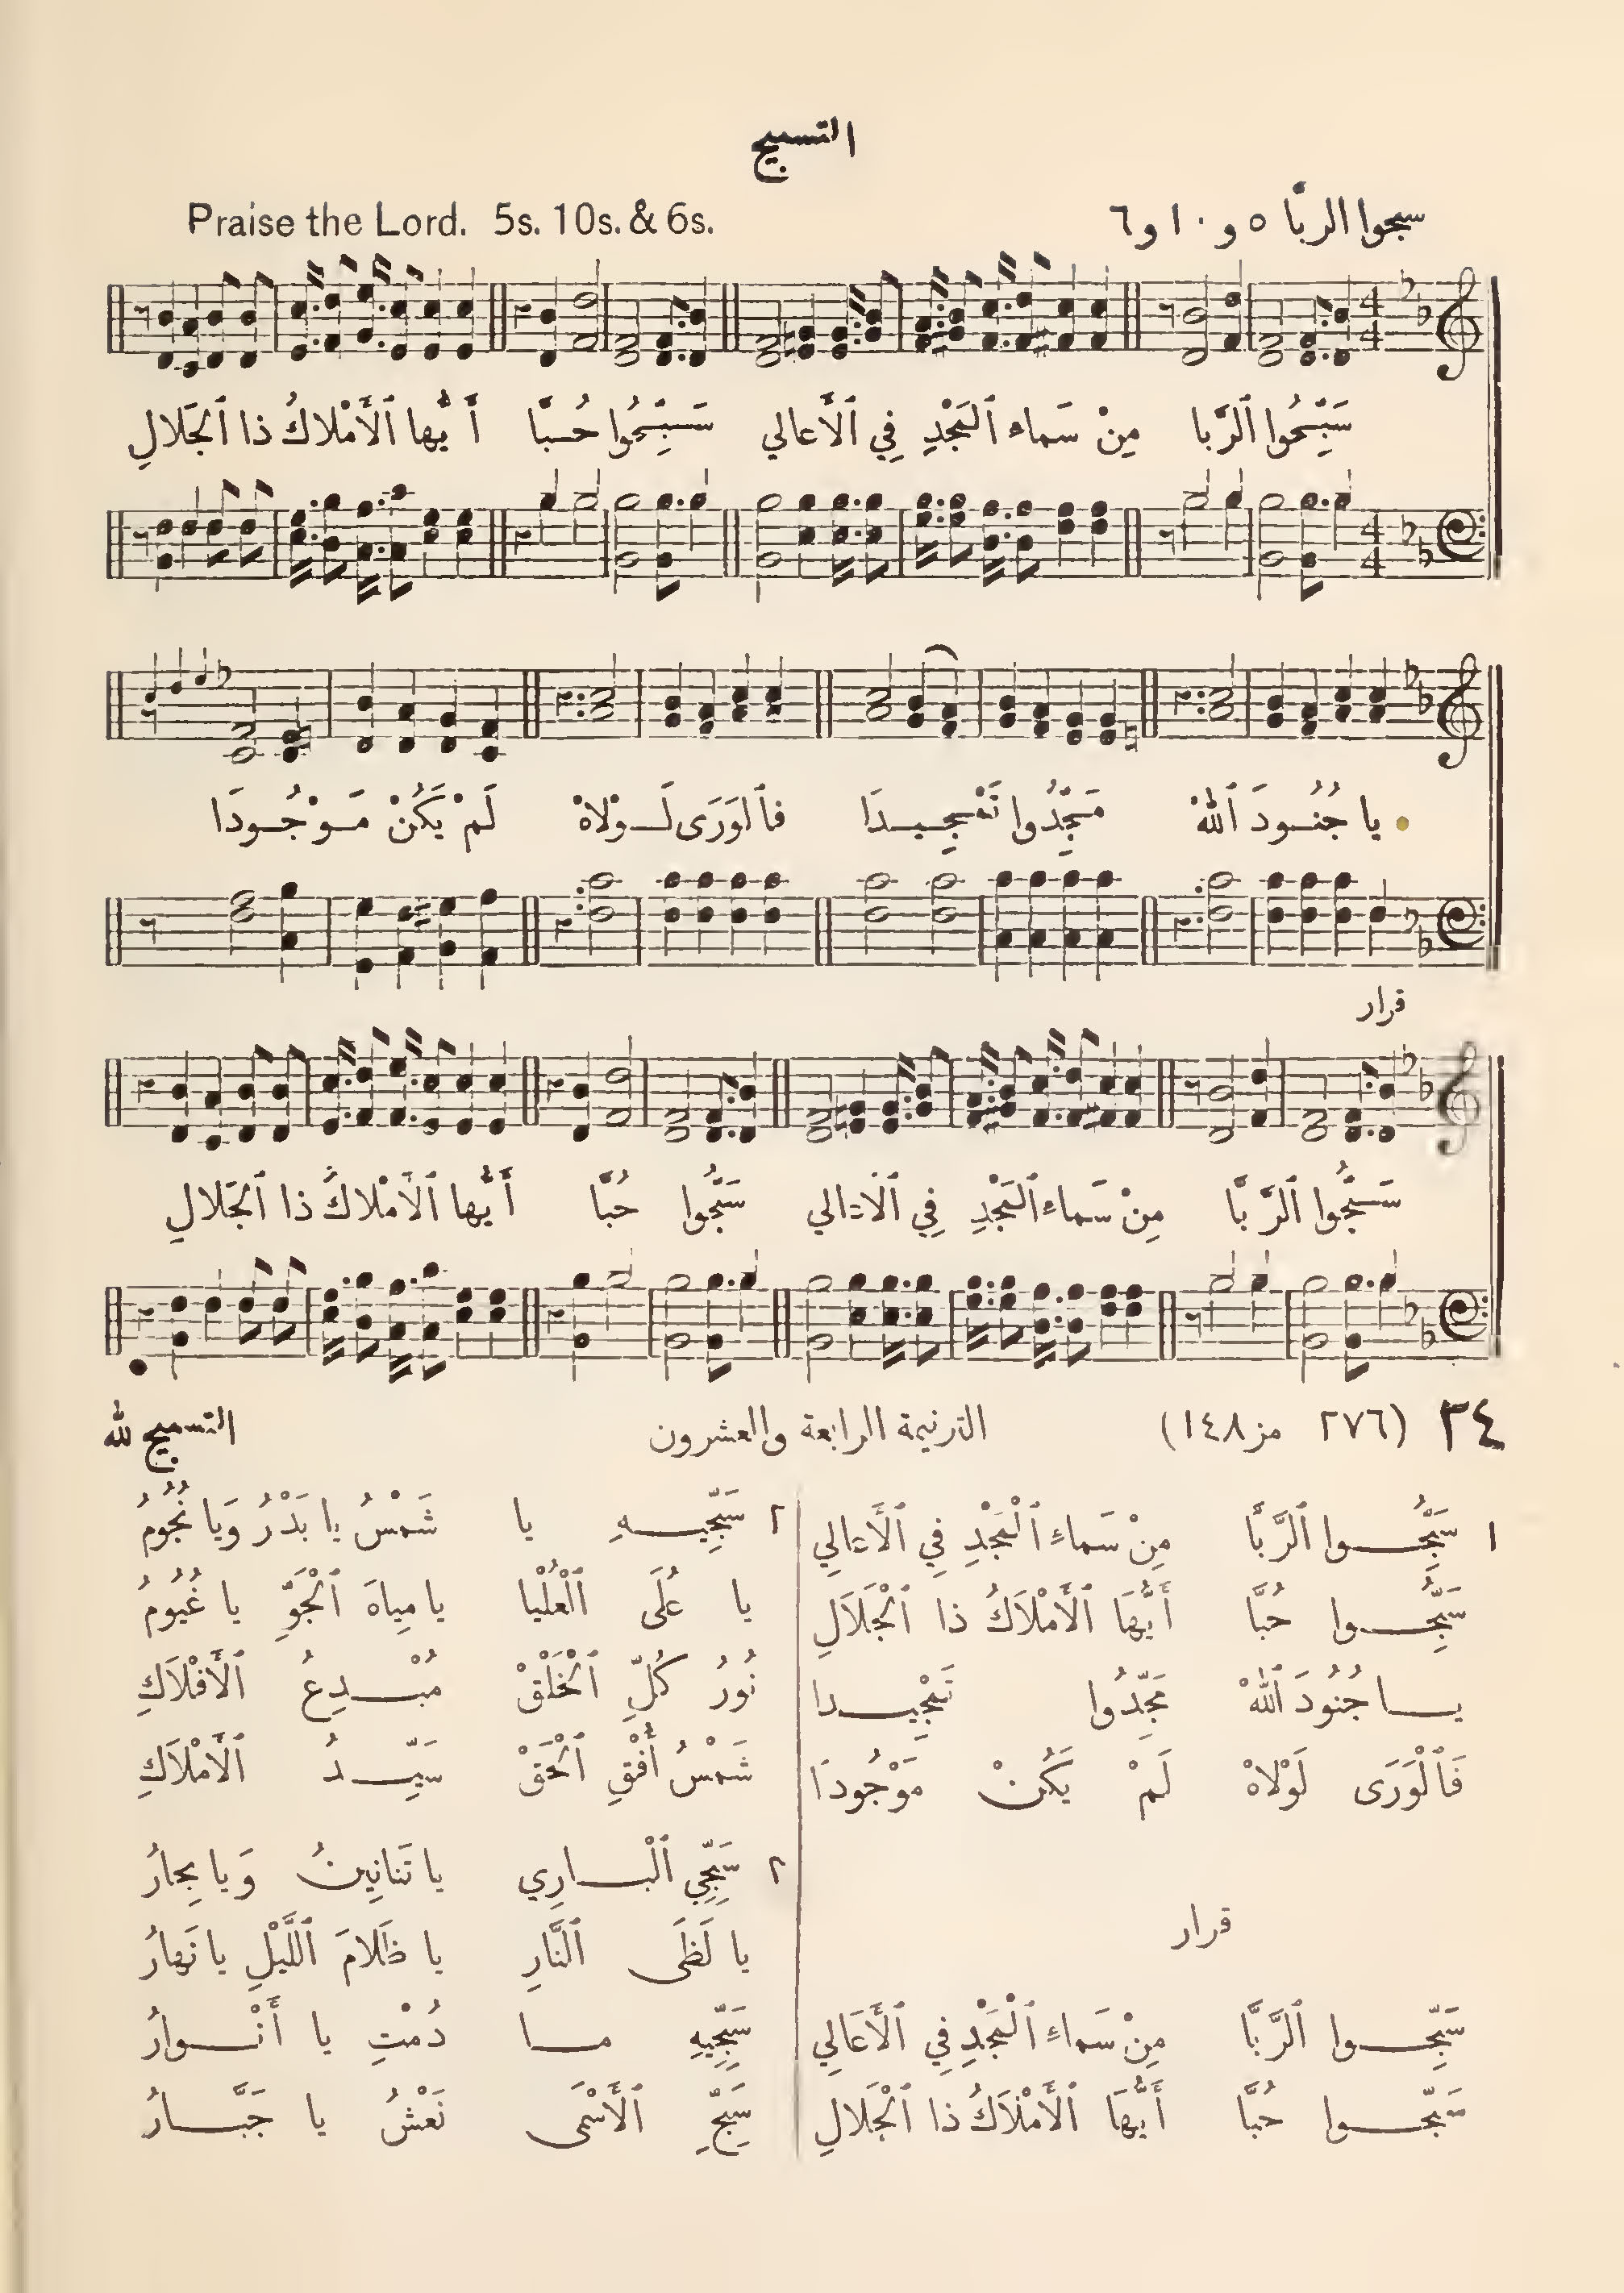 التسبيح
Praise the Lord. 5s. 10s. & 6s.
سبحوا الربَّا ٥ و ١٠ و ٦
سَبِّحُوا ٱلرَّبا مِنْ سَماء ٱلمَجْدِ فِي ٱلأَعالي سَـبِّحُوا حُـبًّا أَيُّها ٱلأَمْلاكُ ذا ٱلجَلالِ
يا جُنُـودَ ٱللهْ مَجِّدُوا تَمْجِـيـدَا فٱلوَرَى لَـوْلاهْ لَمْ يَكُنْ مَـوْجُـودَا
قرار
سَـبِّحُوا ٱلرَّبَّا مِنْ سَماءِ ٱلمَجْدِ فِي ٱلأَعالي سَبِّحُوا حُبًّا أَيُّها ٱلأَمْلاكُ ذا ٱلجَلالِ
٣٤ (٢٧٦ مز ١٤٨) الترنيمة الرابعة والعشرون التسبيح لله
١ سَبِّحُـــوا ٱلرَّبَّا مِنْ سَماءِ ٱلْمَجْدِ فِي ٱلأَعالِي
سَبِّحُـــوا حُبًّا أَيُّهَا ٱلأَمْلاَكُ ذا ٱلْجَلاَلِ
يـــا جُنُودَ ٱللهْ مَجِّدُوا تَمْجِيـــدا
فَٱلْوَرَى لَوْلاهْ لَمْ يَكُنْ مَوْجُودَا
قرار
سَبِّحُـــوا ٱلرَّبَّا مِنْ سَماءِ ٱلْمَجْدِ فِي ٱلأَعَالِي
سَبِّحُـــوا حُبًّا أَيُّهَا ٱلأَمْلاَكُ ذا ٱلْجَلالِ
٢ سَبِّحِيـــهِ يا شَمْسُ يا بَدْرُ وَيا نُجُومُ
يا عُلَى ٱلْعُلْيا يا مِياهَ ٱلْجَوِّ يا غُيُومُ
نُورُ كُلِّ ٱلْخَلْقْ مُبْـــدِعُ ٱلأَفْلاَكِ
شَمْسُ أُفْقِ ٱلْحَقْ سَيِّـــدُ ٱلأَمْلاَكِ
٣ سَبِّحِي ٱلْبـــارِي يا تَنانِينُ وَيا بِحارُ
يا لَظَى ٱلنَّارِ يا ظَلامَ ٱللَّيْلِ يا نَهارُ
سَبِّحِيهِ مـــا دُمْتِ يا أَنْـــوارُ
سَبِّحِ ٱلأَسْمَى نَعْشُ يا جَبَّـــارُ